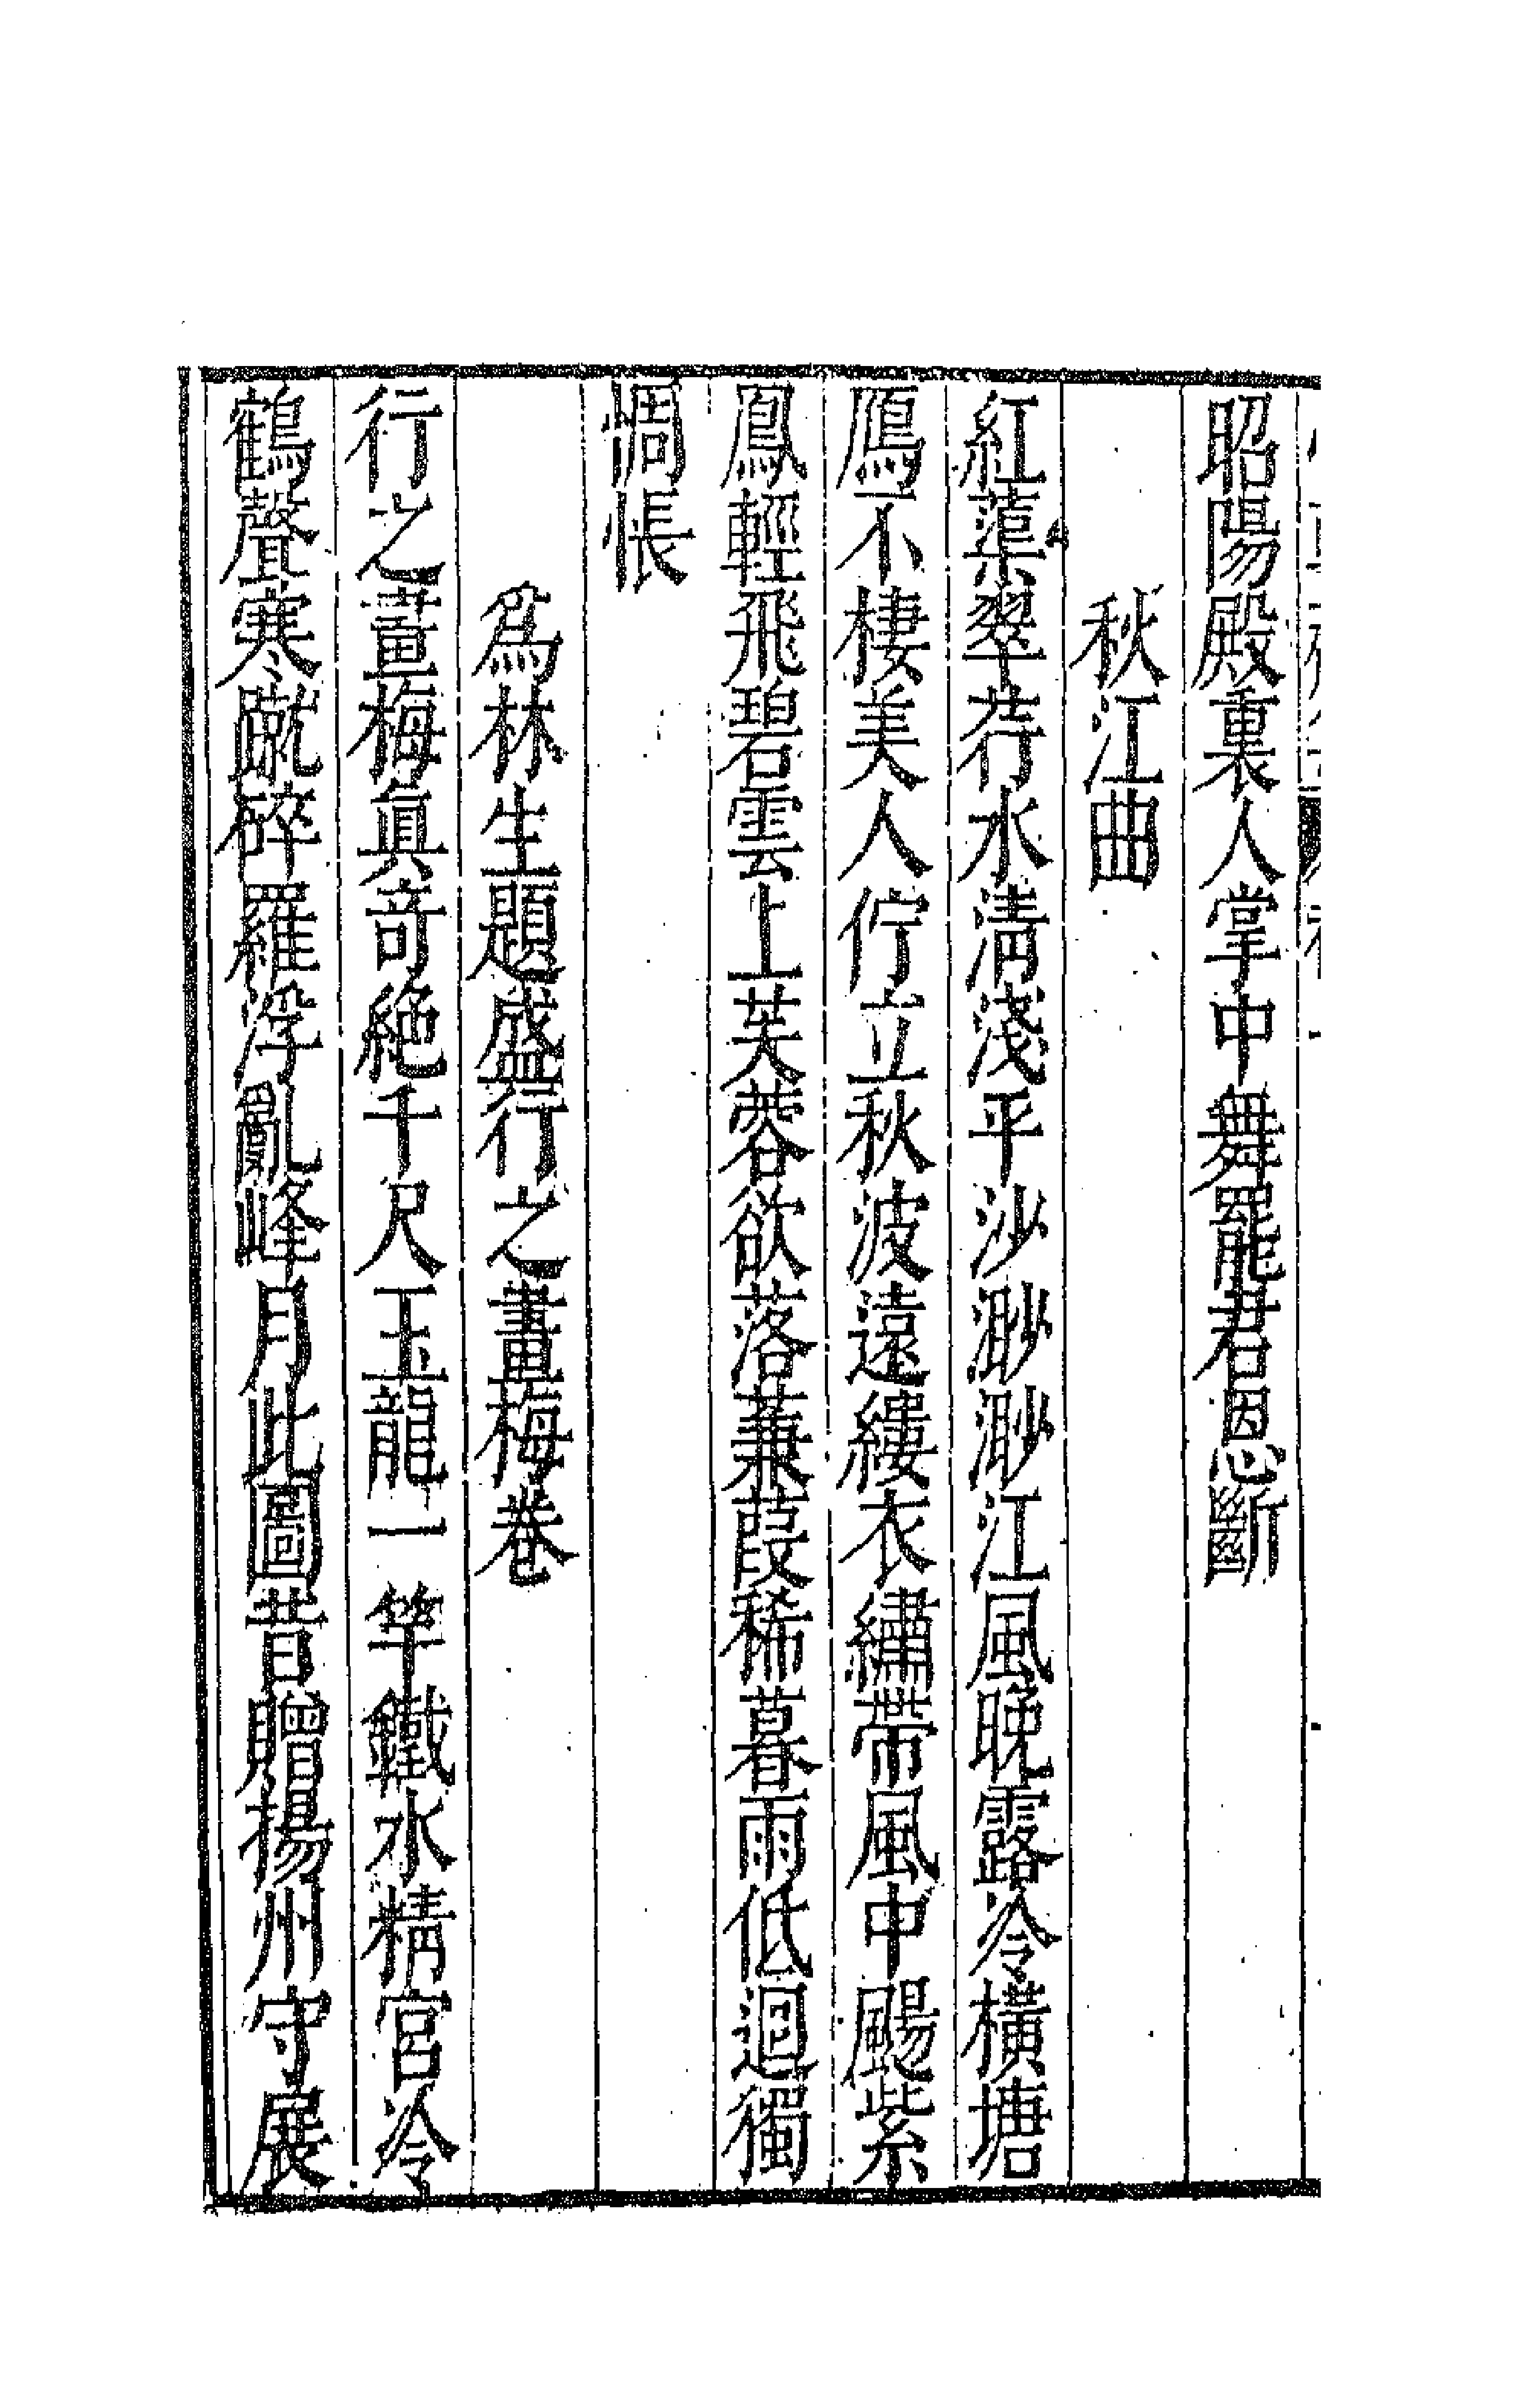 昭陽殿裏人掌中舞罷君恩斷
秋江曲
紅蕖翠荇水清淺平沙渺渺江風晚露冷橫塘
鴈不棲美人佇立秋波遠縷衣繡帶風中颺紫
鳳輕飛碧雲上芙蓉欲落蒹葭稀暮雨低迴獨
惆悵
爲林生題盛行之畫梅卷
行之畫梅眞奇絶千尺玉龍一竿鐵水精宮冷
鶴聲寒蹴碎羅浮亂峰月此圖昔贈楊州守展